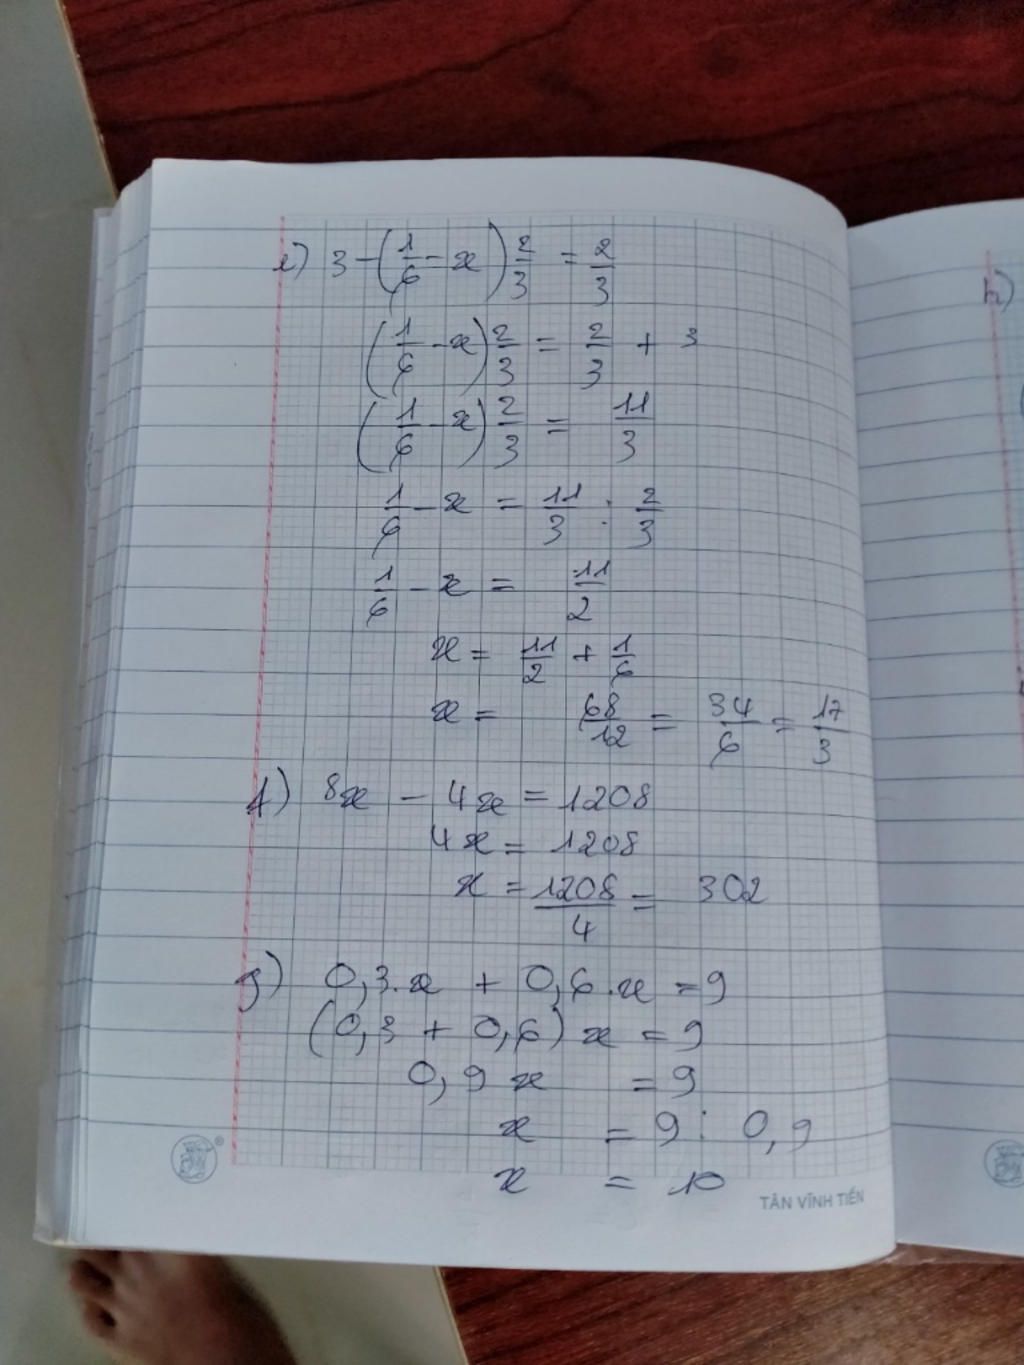 e) 3 - (1/6 - x) 2/3 = 2/3
(1/6 - x) 2/3 = 2/3 + 3
(1/6 - x) 2/3 = 11/3
1/6 - x = 11/3 : 2/3
1/6 - x = 11/2
x = 11/2 + 1/6
x = 68/12 = 34/6 = 17/3
f) 8x - 4x = 1208
4x = 1208
x = 1208/4 = 302
g) 0,3.x + 0,6.x = 9
(0,3 + 0,6) x = 9
0,9 x = 9
x = 9 : 0,9
x = 10
TÂN VĨNH TIẾN
h)